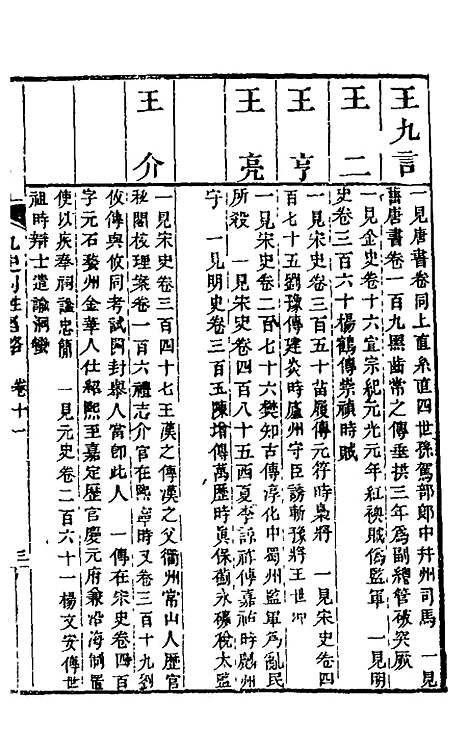 王九言
一見唐書卷同上直系直四世孫駕部郎中幷州司馬　一見
舊唐書卷一百九黑齒常之傳垂拱三年爲副總管被突厥
王二
一見金史卷十六宣宗紀元光元年紅襖賊僞監軍　一見明
史卷三百六十楊鶴傳崇禎時賊
王亨
一見宋史卷三百五十苗履傳元符時梟將　一見宋史卷四
百七十五劉豫傳建炎時廬州守臣誘斬豫將王世冲
王亮
一見宋史卷二百七十六樊知古傳淳化中蜀州監軍爲亂民
所殺　一見宋史卷四百八十五西夏李諒祚傳嘉祐時慰州
守　一見明史卷三百五陳增傳萬歷時眞保薊永礦稅太監
王介
一見宋史卷三百四十七王漢之傳漢之父衢州常山人歷官
祕閣校理案卷一百六禮志介官在熙寧時又卷三百十九劉
攽傳與攸同考試開封舉人當卽此人　一傳在宋史卷四百
字元石婺州金華人仕紹熙至嘉定歷官慶元府兼沿海制置
使以疾奉祠諡忠簡　一見元史卷二百六十一楊文安傳世
祖時辯士遣諭洞蠻
九史同姓名略　卷十一
三